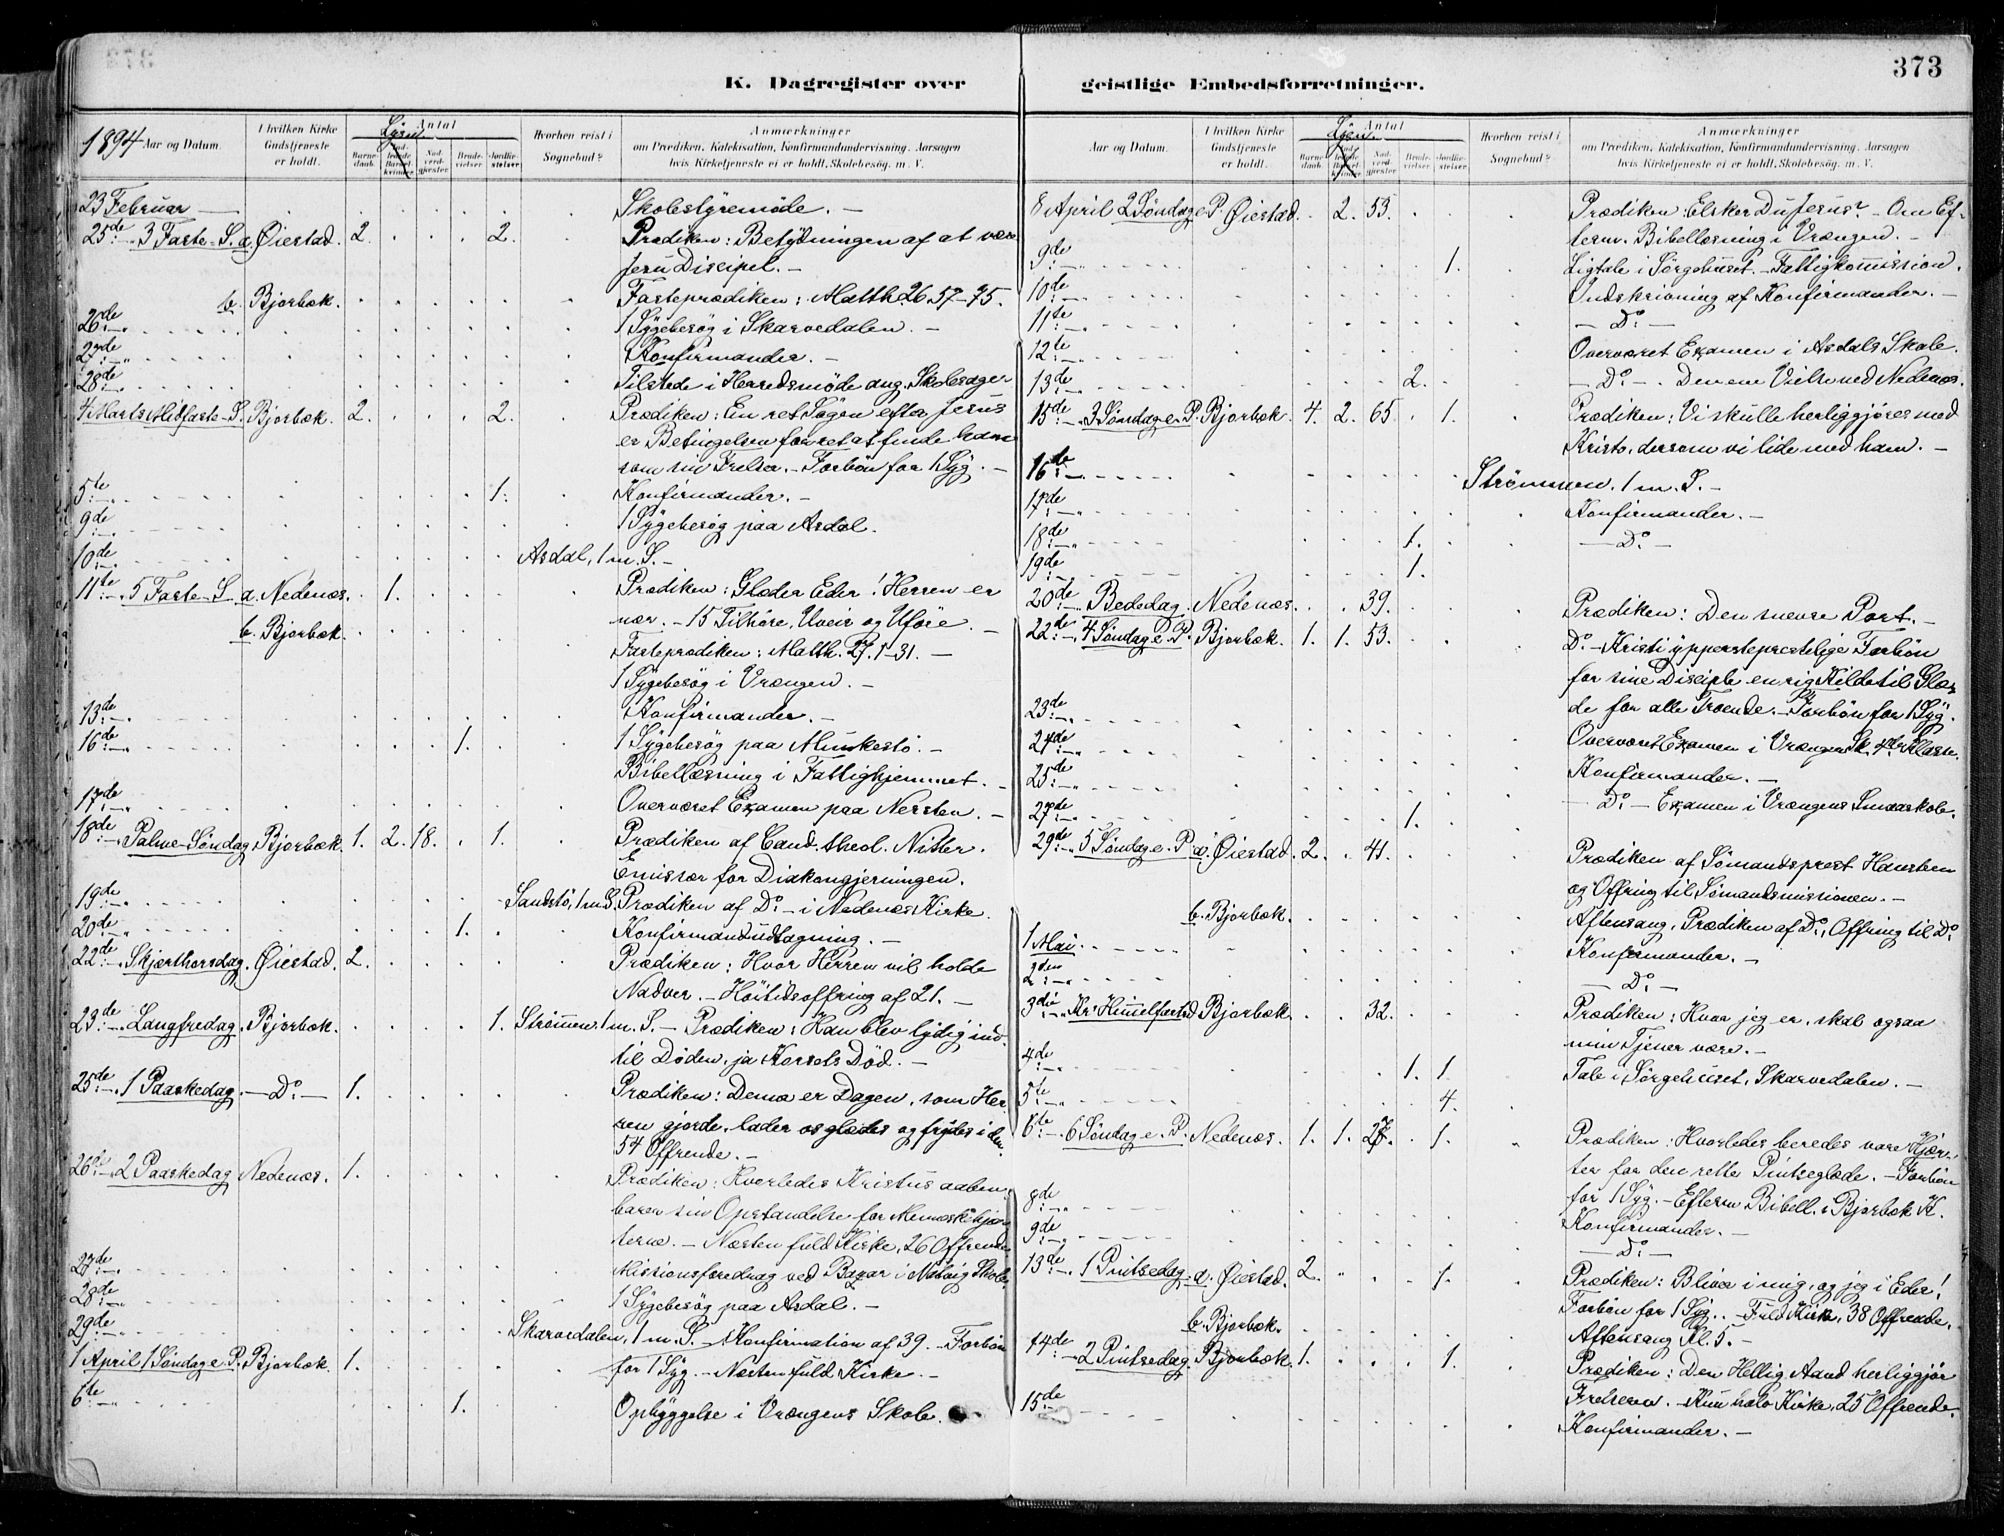 373
K. Dagregister over geistlige Embedsforretninger.
1894 Aar og Datum.
I hvilken Kirke Gudstjeneste er holdt.
Antal
Lysn.
Barnedaab.
Indledende Barselkvinder.
Nadverdgjester.
Brudevielser.
Jordfæstelser.
Hvorhen reist i Sognebud?
Anmærkninger
om Prædiken, Katekisation, Konfirmandundervisning, Aarsagen
hvis Kirketjeneste ei er holdt, Skolebesøg m. V.
23 Februar Skolestyremöde. -
25de 3 Faste-S. a. Øiestad. 2. 2. Prædiken: Betydningen af at være
Jesu Discipel. -
b. Bjorbæk. Fasteprædiken: Matth. 26. 57-75.
26de 1 Sygebesög i Skarvedalen. -
27de Konfirmander. -
28de Tilstede i Herredsmöde ang. Skolesager
4 Marts Midfaste-S. Bjorbæk. 2. 2. Prædiken: En ret Sögen efter Jesus
er Betingelsen for ret at finde ham
som sin Frelser. - Forbön for 1 Syg. -
5te 1. Konfirmander. -
9de 1 Sygebesög paa Asdal.
10de Asdal, 1 m. S. -
11te 5 Faste-S. a. Nedenæs. 1. Prædiken: Glæder Eder! Herren er
nær. - 15 Tilhöre, Uveir og Uföre. -
b. Bjorbæk. Fasteprædiken: Matth. 27. 1-31. -
1 Sygebesög i Vrængen. -
13de Konfirmander. -
16de 1. 1 Sygebesög paa Munkestö. -
Bibellæsning i Fattighjemmet. -
17de Overværet Examen paa Nersten. -
18de Palme-Söndag Bjorbæk. 1. 2. 18. 1. Prædiken af Cand. theol. Nitter.
Emissær for Diakongjerningen.
19de Sandstö, 1 m. S. Prædiken af Do - i Nedenæs Kirke.
20de 1. Konfirmandudtagning. -
22de Skjærthorsdag. Øiestad. 2. Prædiken: Hvor Herren vil holde
Nadver. - Höitidsoffring af 21. -
23de Langfredag. Bjorbæk. 1. Strömmen, 1 m. S. - Prædiken: Han blev lydig ind-
til Döden, ja Korsets Död. -
25de 1 Paaskedag. - Do - 1. Prædiken: Denne er Dagen, som Her-
ren gjorde, lader os glædes og frydes i den.
54 Offrende. -
26de 2 Paaskedag Nedenæs. 1. Prædiken: Hvorledes Kristus aaben-
barer sin Opstandelse for Menneskehjer-
terne. - Næsten fuld Kirke, 26 Offrende
27de Missionsforedrag ved Bazar i Natvig Skole.
28de 1 Sygebesög paa Asdal. -
29de Skarvedalen, 1 m. S. - Konfirmation af 39. - Forbön
1 April 1 Söndag e. P. Bjorbæk. 1. for 1 Syg. - Næsten fuld Kirke. -
6te 1. Opbyggelse i Vrængens Skole.
Aar og Datum.
I hvilken Kirke Gudstjeneste er holdt.
Antal
Lysn.
Barnedaab.
Indledende Barselkvinder.
Nadverdgjester.
Brudevielser.
Jordfæstelser.
Hvorhen reist i Sognebud?
Anmærkninger
om Prædiken, Katekisation, Konfirmandundervisning, Aarsagen
hvis Kirketjeneste ei er holdt, Skolebesøg m. V.
8 April 2 Söndag e. P. Øiestad. 2. 53. Prædiken: Elsker Du Jesus? - Om Ef-
term. Bibellæsning i Vrængen. -
9de 1. Ligtale i Sörgehuset. - Fattigkommission.
10de Indskrivning af Konfirmander. -
11te - Do -
12te Overværet Examen i Asdals Skole.
13de 2. - Do - . Den ene Vielse ved Nedenæs.
15de 3 Söndag e. P. Bjorbæk. 4. 2. 65. 1. Prædiken: Vi skulle herliggjöres med
Kristo, dersom vi lide med ham. -
16de Strömmen, 1 m. S. -
17de Konfirmander. -
18de 1. - Do -
19de 1.
20de Bededag. Nedenæs. 39. Prædiken: Den snevre Port. -
22de 4 Söndag e. P. Bjorbæk. 1. 1. 53. Do - Kristi ypperstepræstelige Forbön
for sine Disciple en rig Kilde til Glæ-
de for alle Troende. - Forbön for 1 Syg.
23de Overværet Examen i Vrængens Sk. 4de Klasse.
24de Konfirmander. -
25de - Do - Examen i Vrængens Smaaskole.
27de 1.
29de 5 Söndag e. P. a. Øiestad. 2. 41. Prædiken af Sömandsprest Hansteen
og Offring til Sömandsmissionen. -
b. Bjorbæk. Aftensang, Prædiken af Do, Offring til Do
1 Mai Konfirmander. -
2den - Do -
3die Kr. Himmelfartsd Bjorbæk. 32. Prædiken: Hvor jeg er, skal ogsaa
min Tjener være. -
4de 1. 1. Tale i Sörgehuset, Skarvedalen. -
5te 4.
6te 6 Söndag e. P. Nedenæs. 1. 1. 27. 1. Prædiken: Hvorledes beredes vore Hjer-
ter for den rette Pintseglæde. - Forbön
for 1 Syg. - Efterm. Bibell. i Bjorbæk K.
8de Konfirmander. -
9de - Do -
13de 1 Pintsedag a. Øiestad. 2. 1. Prædiken: Bliver i mig, og jeg i Eder!
Forbön for 1 Syg. - Fuld Kirke, 38 Offrende.
b. Bjorbæk. Aftensang Kl. 5. -
14de 2 Pintsedag. Bjorbæk. 1. 1. Prædiken: Den Hellig Aand herliggjör
Frelseren. - Kun halv Kirke, 25 Offrende.
15de Konfirmander. -